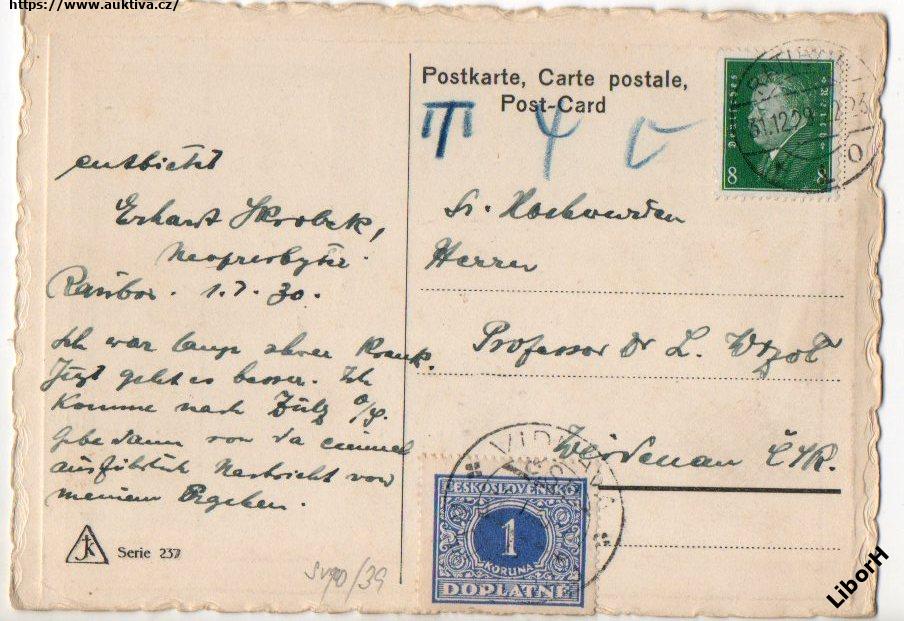 https://www.auktiva.cz/
Postkarte, Carte postale,
Post-Card
Deutsches Reich
8 8
31.12.29
T
entbietet
Erhard Skrobek,
Neopresbyter.
Ratibor. 1.7.30.
Ich war lange schwer krank.
Jetzt geht es besser. Ich
komme nach Zülz O/S.
Gebe dann von da einmal
ausführlich Nachricht von
meinem Ergehen.
Sr. Hochwürden
Herrn
Professor Dr L.
Weidenau ČSR.
VIDNAVA
ČESKOSLOVENSKO
1
KORUNA
DOPLATNÉ
JK
Serie 237
/39
LiborH